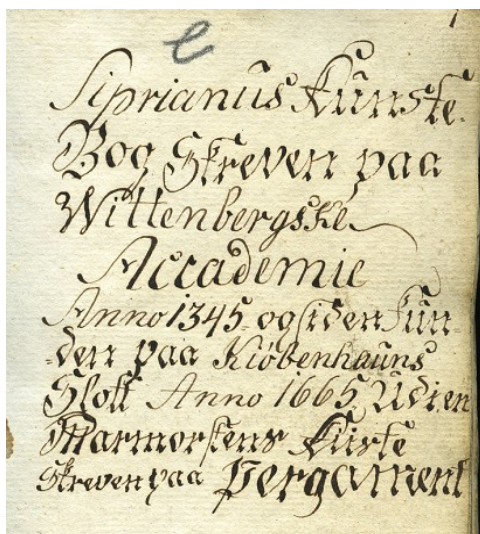 e
Siprianus Kunste-
Bog Skreven paa
Wittenbergske
Accademie
Anno 1345 og siden fun-
-den paa Kiøbenhauns
Slott Anno 1665 Udi en
Marmorstens Kiiste
Skreven paa Pergament